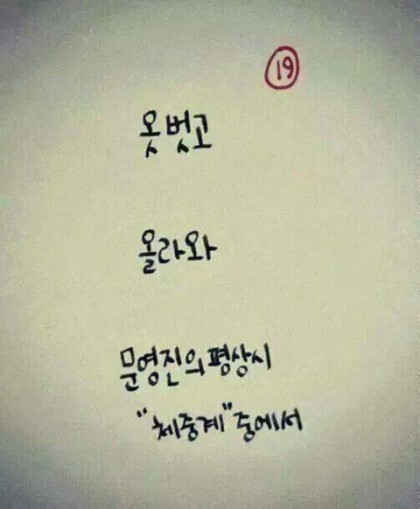 19
옷벗고
올라와
문영진의 평상시
"체중계" 중에서